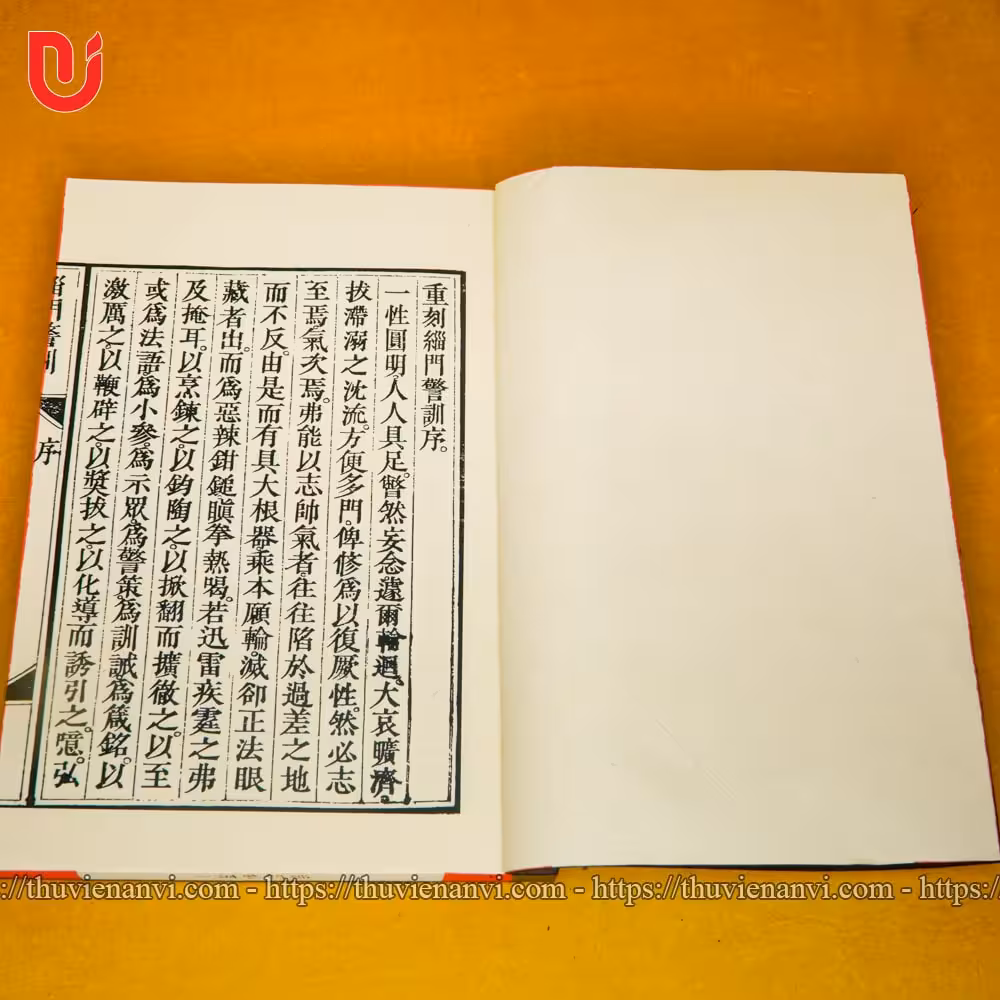 重刻緇門警訓序。
一性圓明。人人具足。瞥然妄念遽爾輪迴。大哀曠濟。
拔滯溺之沈流。方便多門。俾修爲以復厥性。然必志
至焉。氣次焉。弗能以志帥氣者。往往陷於過差之地
而不反。由是而有具大根器乘本願輪。滅卻正法眼
藏者出。而爲惡辣鉗鎚瞋拳熱喝。若迅雷疾霆之弗
及掩耳。以烹鍊之。以鈞陶之。以掀翻而擴徹之。以至
或爲法語。爲小參。爲示眾。爲警策。爲訓誡。爲箴銘。以
激厲之。以鞭辟之。以奬拔之。以化導而誘引之。噫。弘
緇門警訓
序
https://thuvienanvi.com - https://thuvienanvi.com - https://thuvienanvi.com -